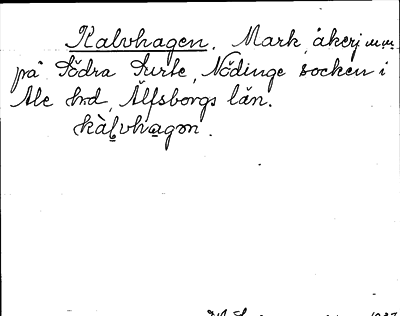 Kalvhagen. Mark, åkerj m.m.
på Södra Surte, Nödinge socken i
Ale hrd, Älfsborgs län.
kàlvhagɷn.